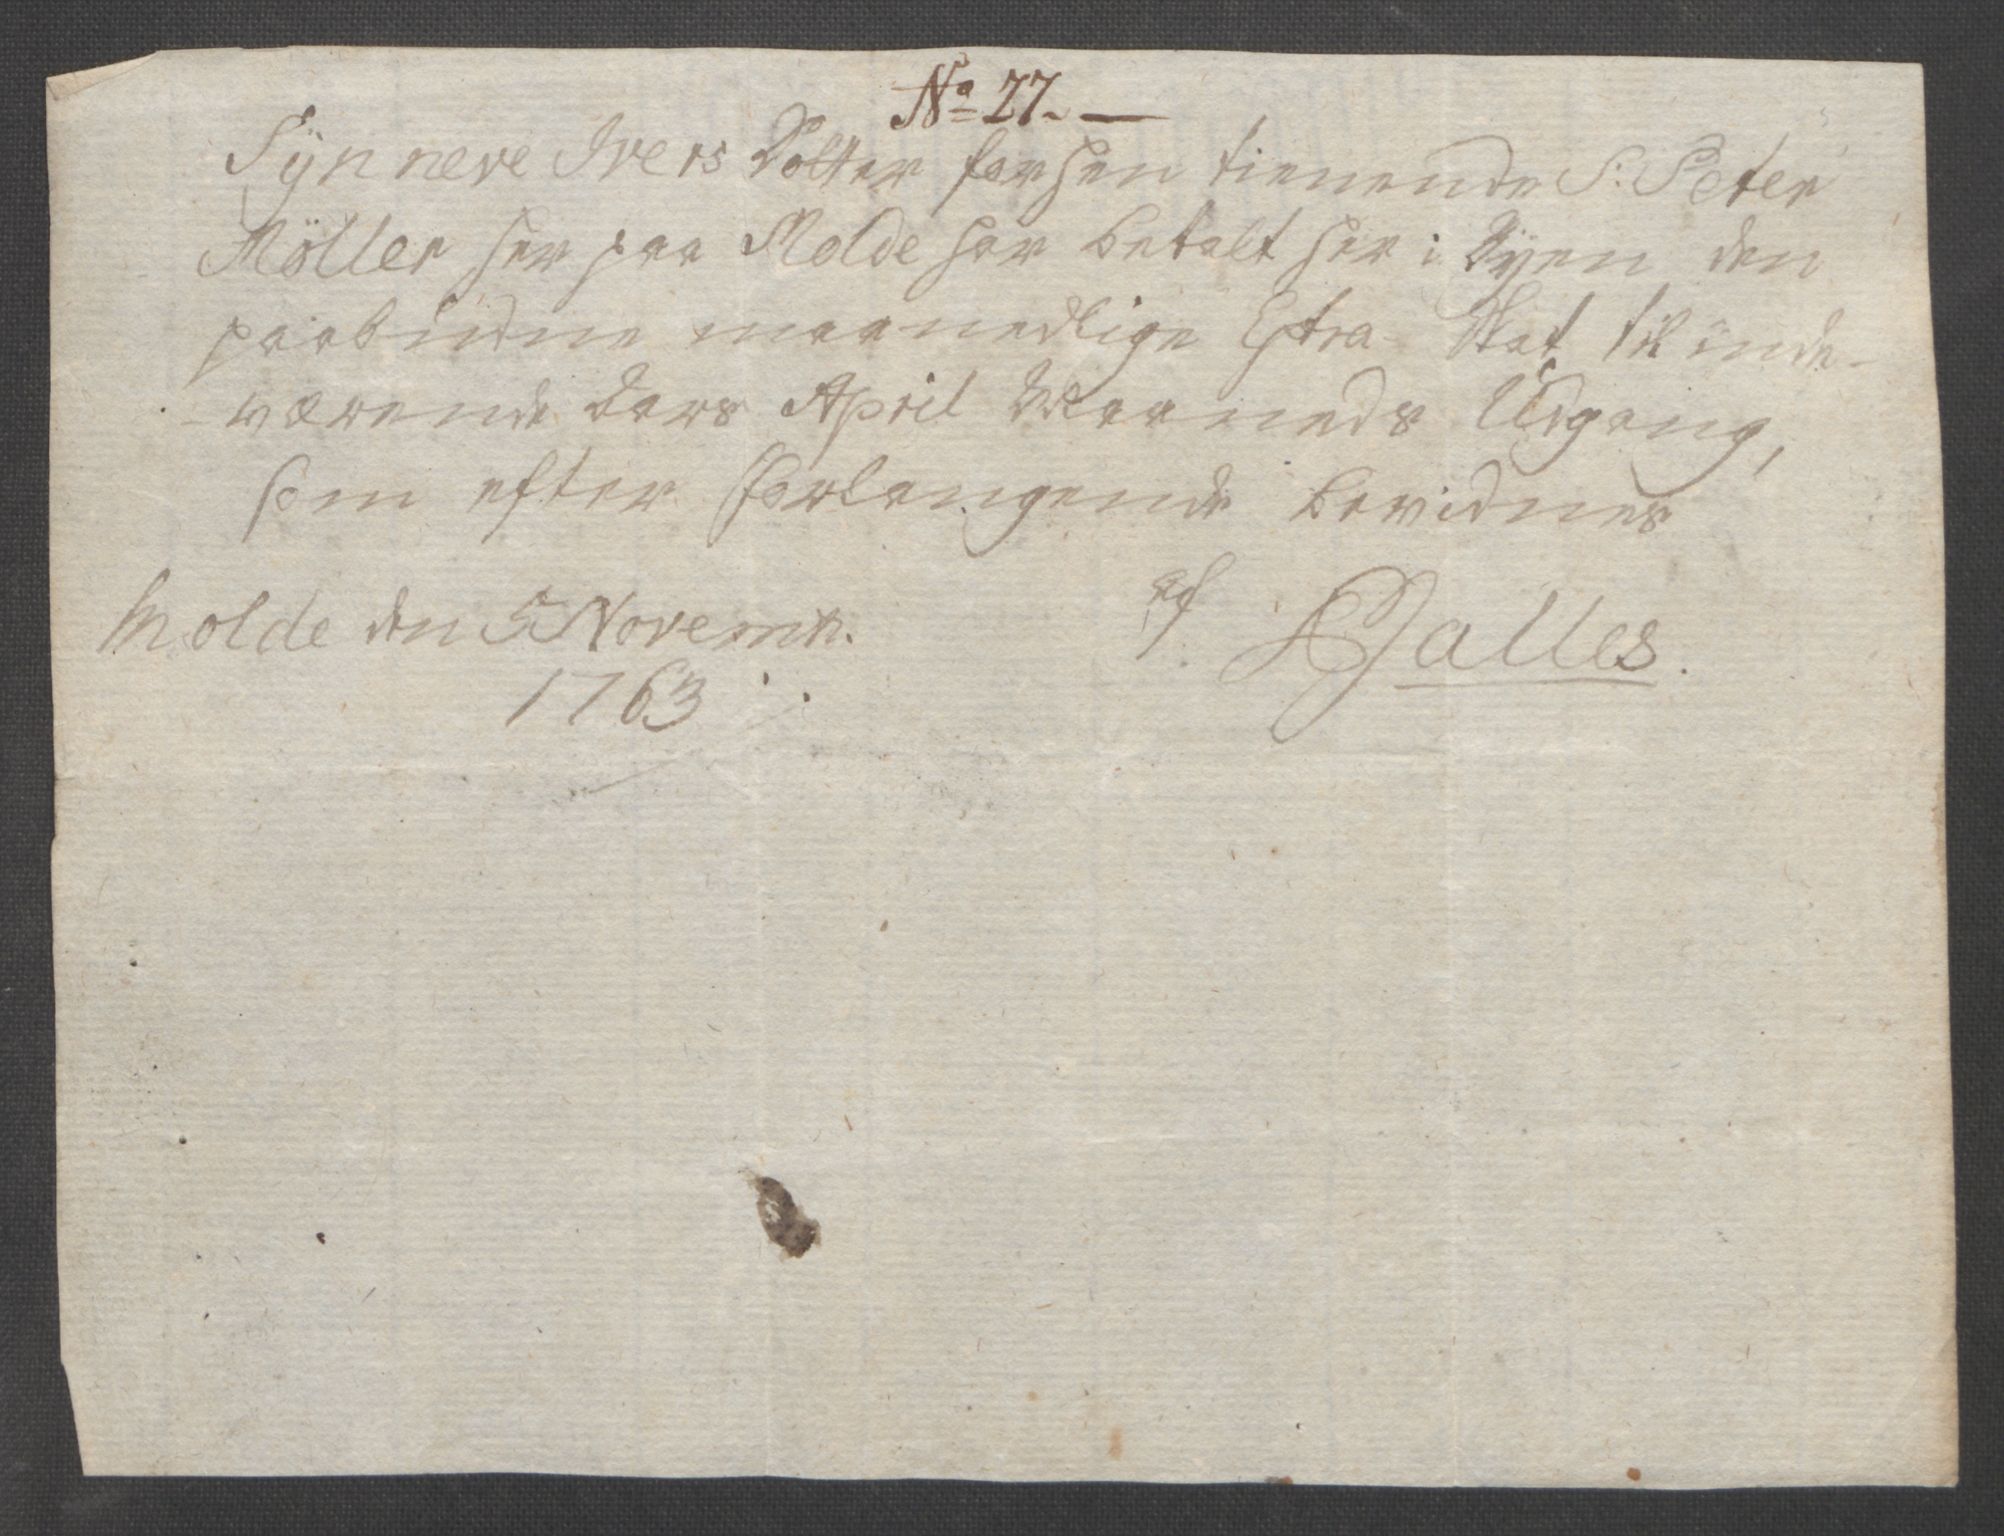 No 27.
Synneve Ivers Dotter forhen tienende S. Peter
Möller her paa Molde har betalt her i Byen den
paabudne maanedlige Extra Skat til inde-
-værende Aars April Maaneds Udgang,
som efter Forlangende bevidnes
Molde den 5 Novemb. af Halles.
1763